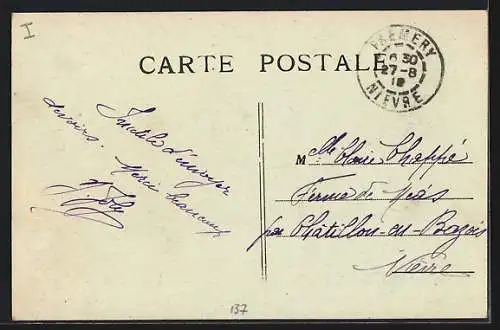 I
CARTE POSTALE
PREMERY
6 30
27-8
NIEVRE
Inutile d'envoyer
devoirs.
Merci
M lle Claire Chappé
Ferme de
par Châtillon-en-Bazois
Nièvre
137